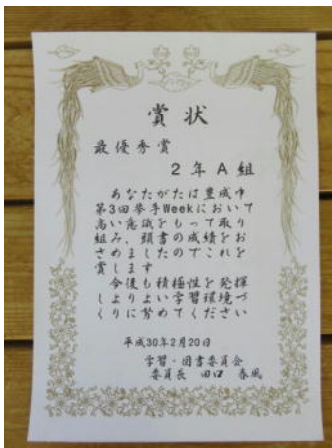 賞状
最優秀賞
2年A組
あなたがたは豊成中
第3回挙手Weekにおいて
高い意識をもって取り
組み、頭書の成績をお
さめましたのでこれを
賞します
今後も積極性を発揮
しよりよい学習環境づ
くりに努めてください
平成30年2月20日
学習・図書委員会
委員長 田口 春風